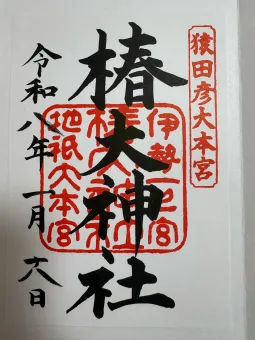 猿田彦大本宮
椿大神社
伊勢一宮
椿大神社
地祇大本宮
令和八年一月十六日